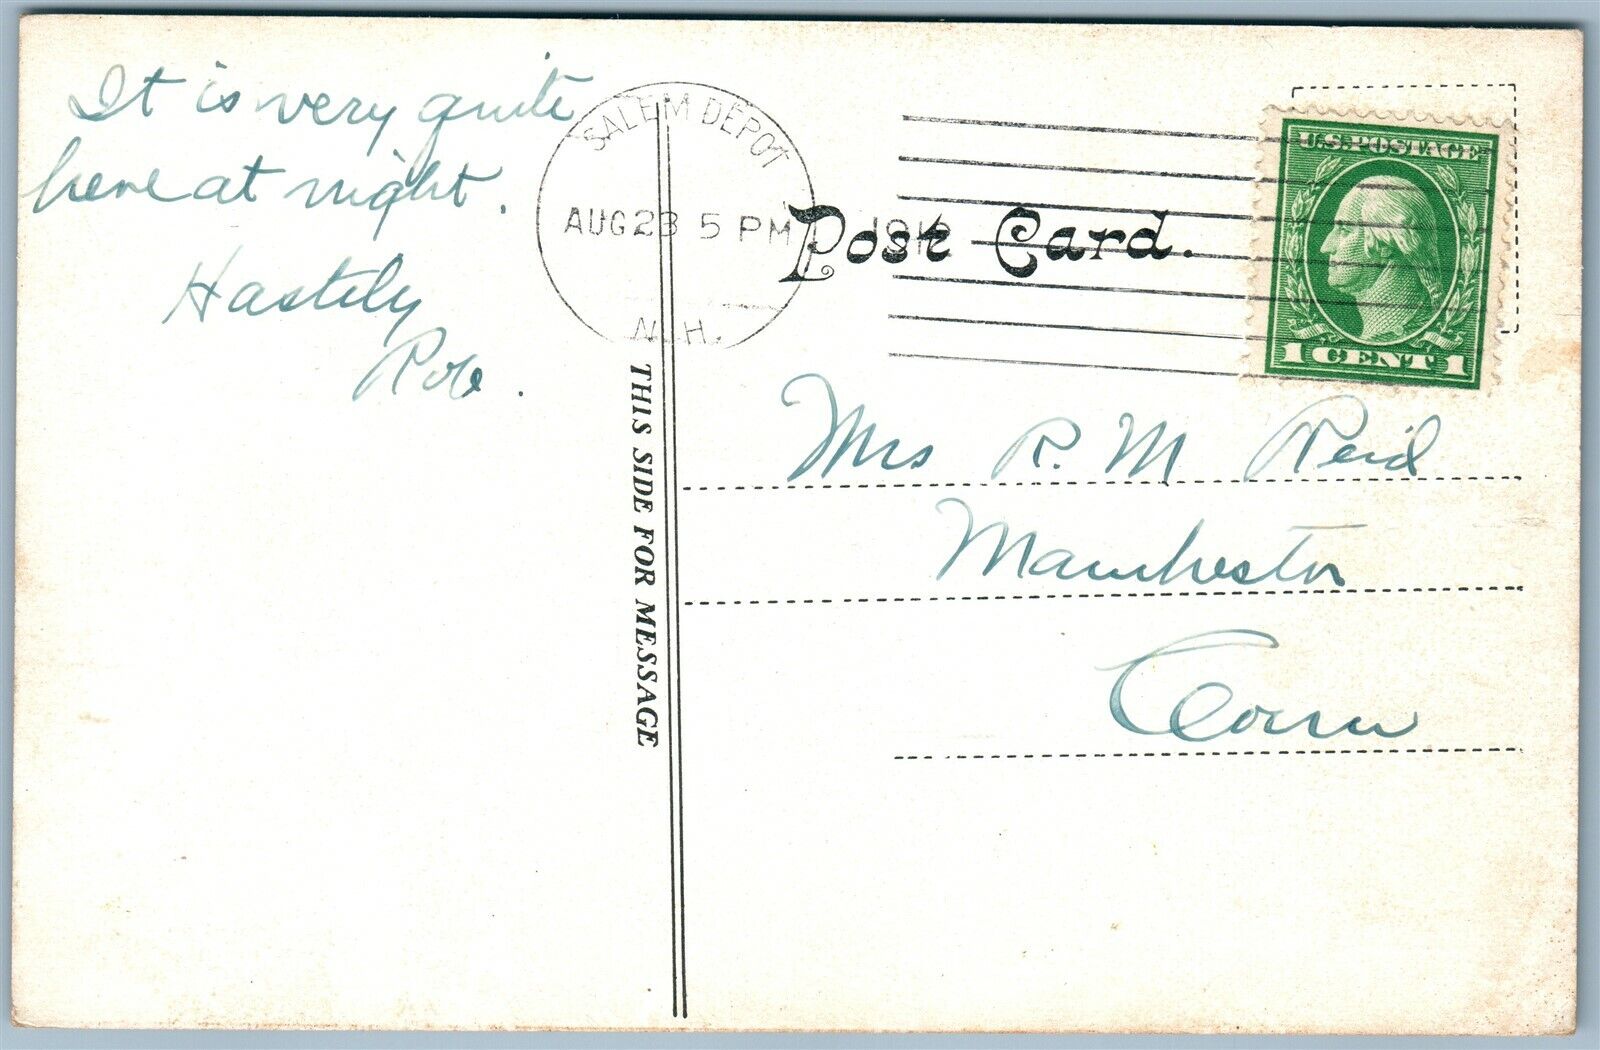 It is very quite
here at night.
Hastily
SALEM DEPOT
AUG 23 5 PM
N.H.
Post Card.
U.S. POSTAGE
1 CENT 1
THIS SIDE FOR MESSAGE
Mrs R. M Reid
Manchester
Conn